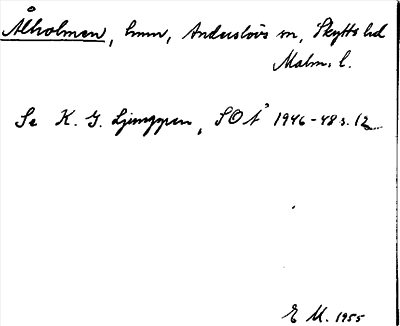 Ålholmen, hmn, Anderslövs sn, Skytts hd
Malm. l.
Se K. G. Ljunggren, SOÅ 1946-48 s. 12
E M. 1955